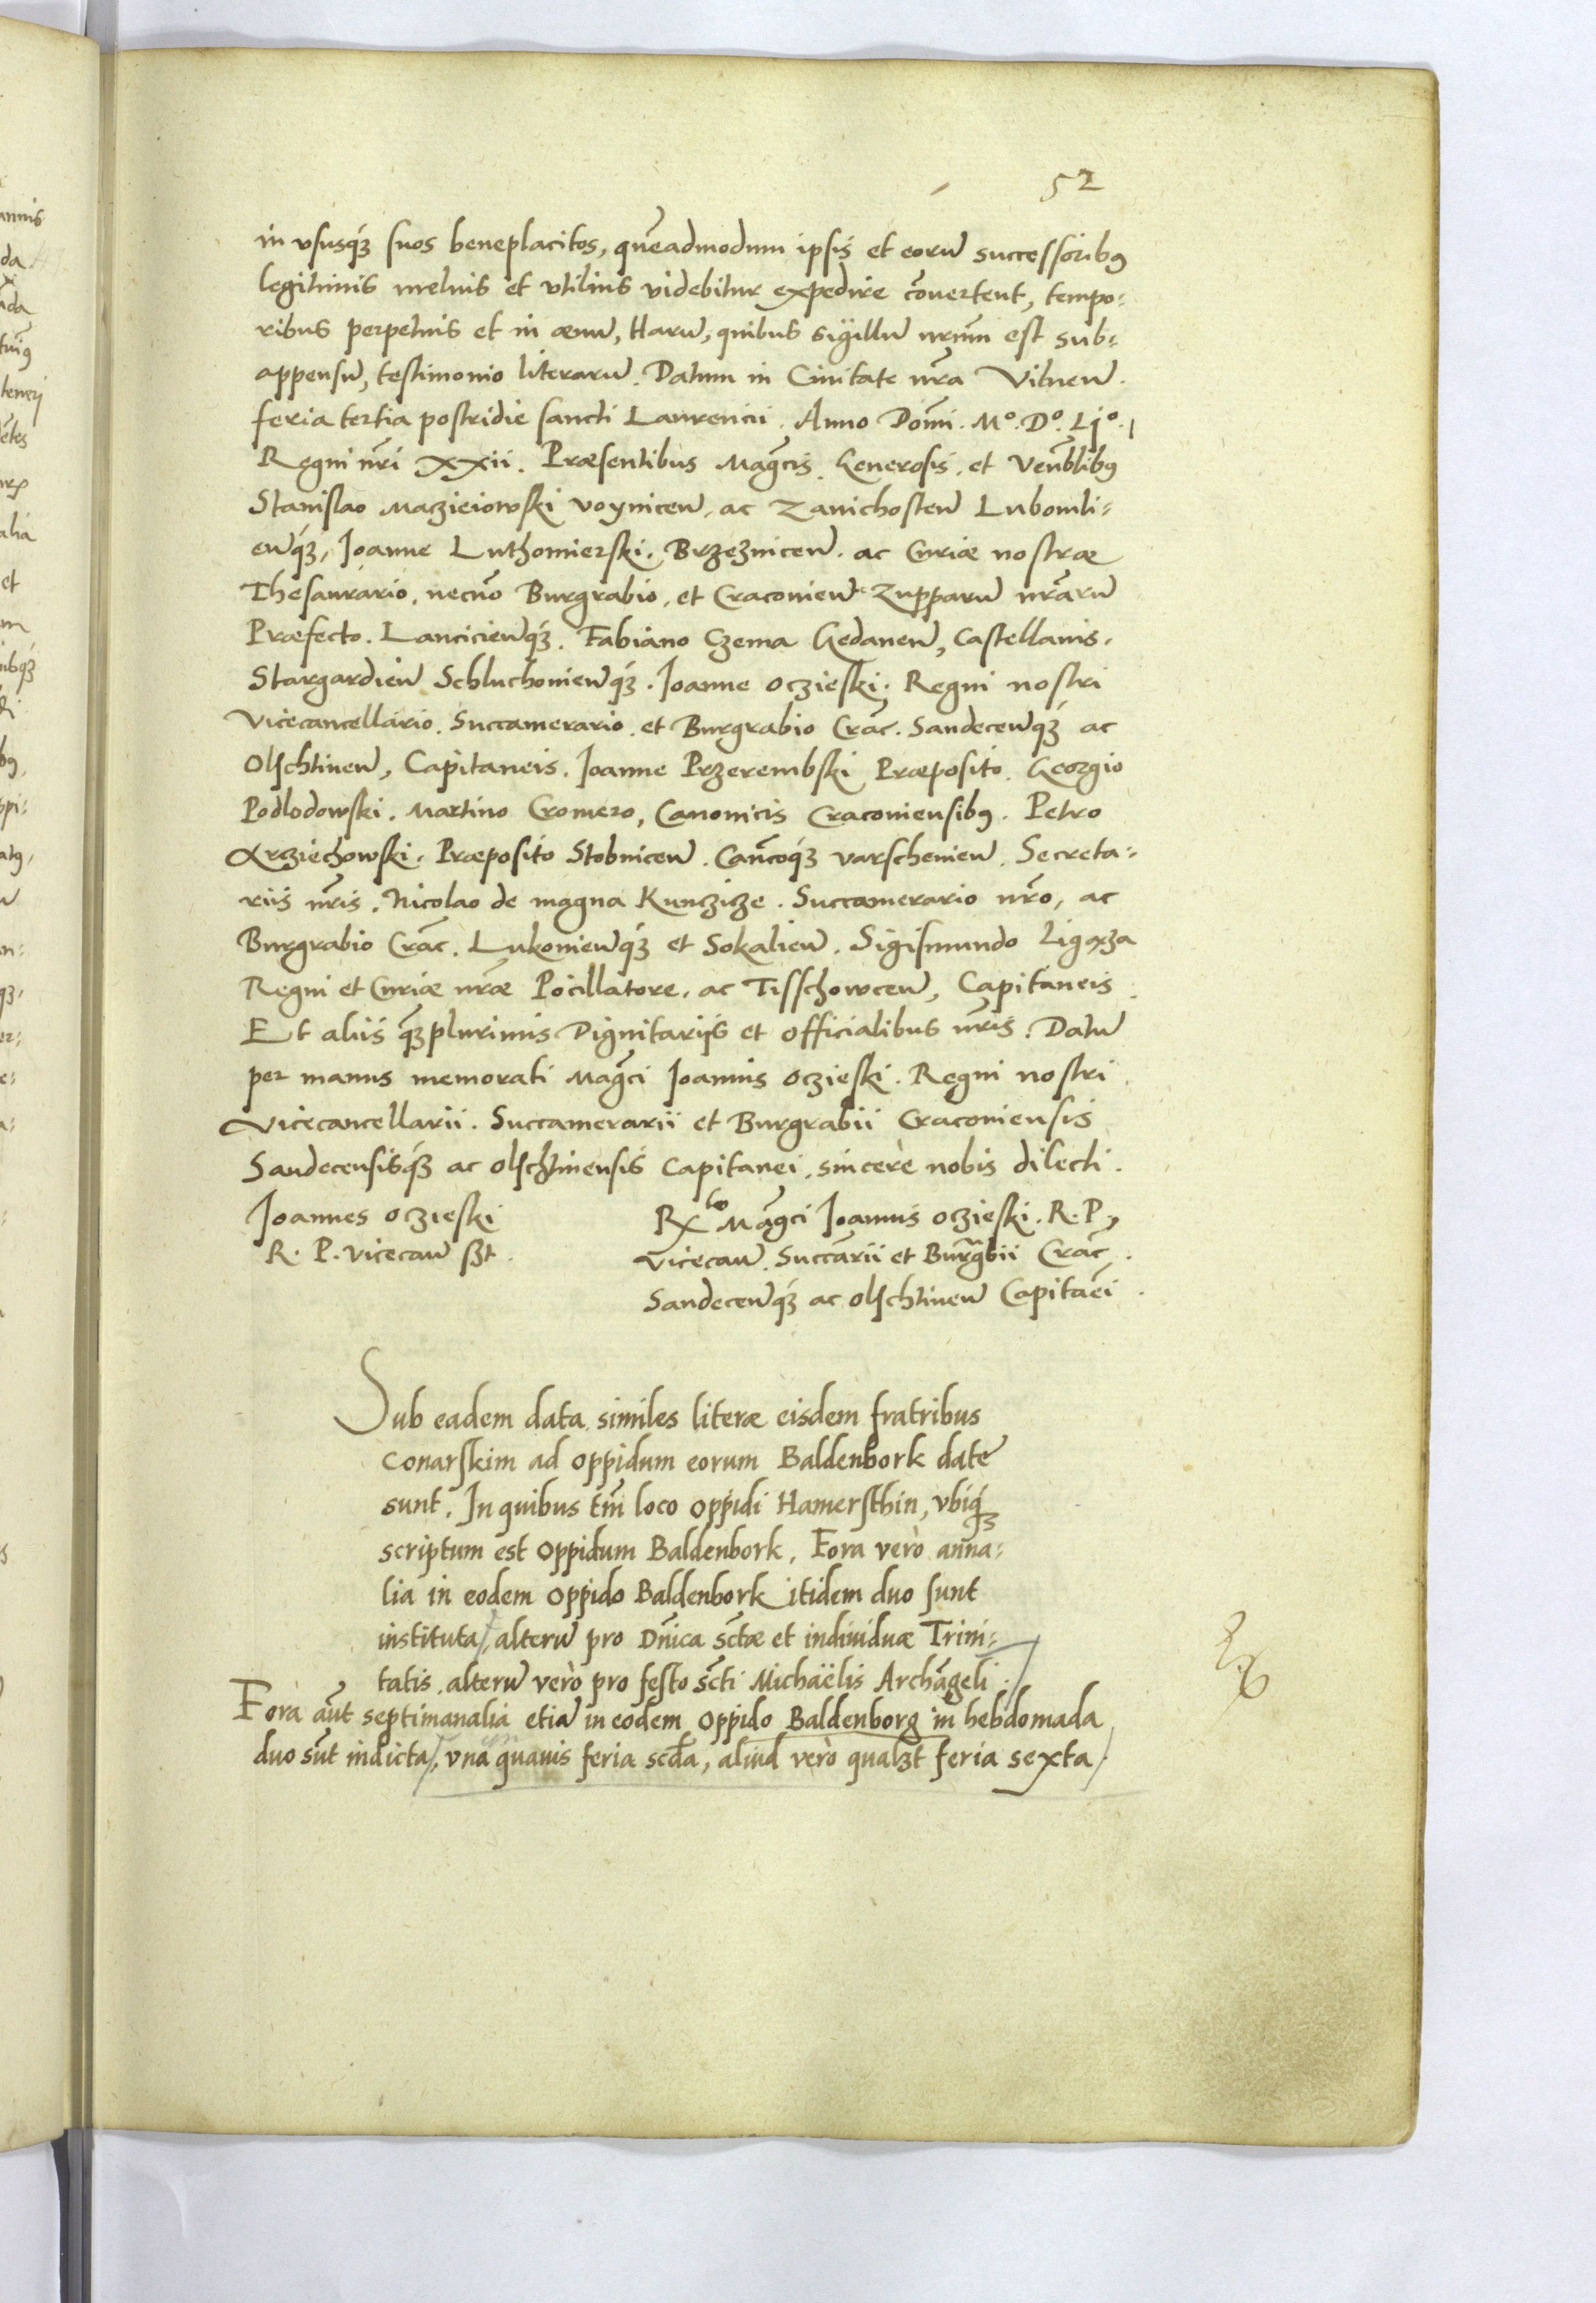 52
in vsusq́ꝫ suos beneplacitos, quẽadmodum ipsis et eorũ successoribꝰ
legitimis melius et vtilius videbitur expedire cõuertent, tempo:
ribus perpetuis et in æuũ, Harũ, quibus sigillũ nr̃um est sub:
appensũ, testimonio literarũ. Datum in Ciuitate nr̃a Vilneñ.
feria tertia postridie sancti Laurencii. Anno Dom̃i. Mº. Dº. Ljº.
Regni nr̃i XXXii. Præsentibus Mag̃cis. Generosis. et Veñbilibꝰ
Stanislao Maczieiowski Voyniceñ. ac Zawichosteñ Lubomli:
eñq́ꝫ, Joanne Luthomierski. Brzezniceñ. ac Curiæ nostræ
Thesaurario, necnõ Burgrabio. et Cracovieñ. Zupparũ nr̃arũ
Præfecto. Lancicieñq́ꝫ. Fabiano Czema Gedaneñ, Castellanis.
Stargardieñ Schluchovieñq́ꝫ. Joanne Oczieski. Regni nostri
Vicecancellario. Succamerario. et Burgrabio Crac̃. Sandeceñq́ꝫ ac
Olschtineñ, Capitaneis. Joanne Przerembski Præposito. Georgio
Podlodowski. Martino Cromero, Canonicis Cracoviensibꝰ. Petro
Arziechowski. Præposito Stobniceñ. Cañcoq́ꝫ Varschevieñ. Secreta:
riis nr̃is. Nicolao de magna Kunczicze. Succamerario nr̃o, ac
Burgrabio Crac̃. Lukovieñq́ꝫ et Sokalieñ. Sigismundo Ligaza
Regni et Curiæ nr̃æ Pocillatore. ac Tisschowceñ, Capitaneis.
Et aliis q̃ꝫplurimis Dignitariis et officialibus nr̃is. Datũ
per manus memorati Mag̃ci Joannis Oczieski. Regni nostri
Vicecancellarii. Succamerarii et Burgrabii Cracoviensis
Sandecensisq́ꝫ ac Olschtinensis Capitanei. sincerè nobis dilecti.
Joannes Oczieski
R. P. Vicecañ sszt.
Rᵗⁱᵒ Mag̃ci Joannis Oczieski. R. P.
Vicecañ. Succ̃arii et Burg̃bii Crac̃.
Sandeceñq́ꝫ ac Olschtineñ Capitãei.
Sub eadem data similes literæ eisdem fratribus
Conarskim ad oppidum eorum Baldenbork date
sunt. In quibus tm̃ loco oppidi Hamersthin, vbiq́ꝫ
scriptum est oppidum Baldenbork. Fora verò anna:
lia in eodem oppido Baldenbork itidem duo sunt
instituta, alterũ pro Dñica sc̃tæ et indiuiduæ Trini:
tatis. alterũ verò pro festo sc̃ti Michaëlis Archãgeli.
Fora aũt septimanalia etiã in eodem oppido Baldenborg in hebdomada
duo sũt indicta, vna quauis feria scd̃a, aliud verò qualzt feria sexta.